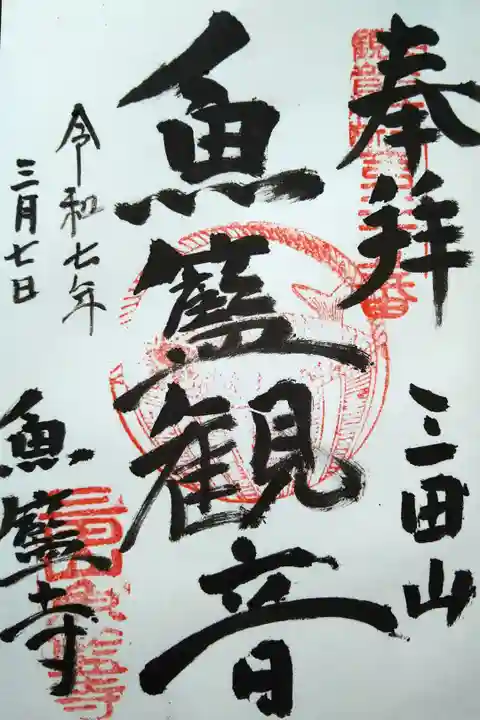 奉拝
三田山
魚籃観音
令和七年
三月七日
魚籃寺